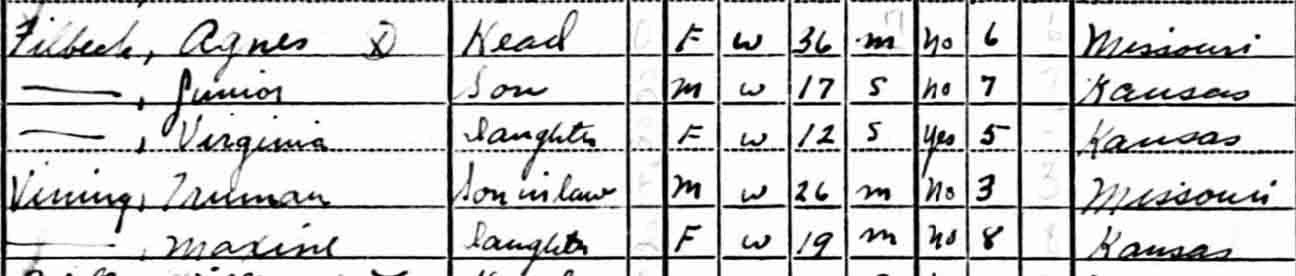 Filbeck, Agnes ⓧ Head F W 36 m no 6 Missouri
—, Junior Son M W 17 S no 7 Kansas
—, Virginia daughter F W 12 S yes 5 Kansas
Vining, Truman Son in law M W 26 m no 3 Missouri
—, Maxine daughter F W 19 m no 8 Kansas